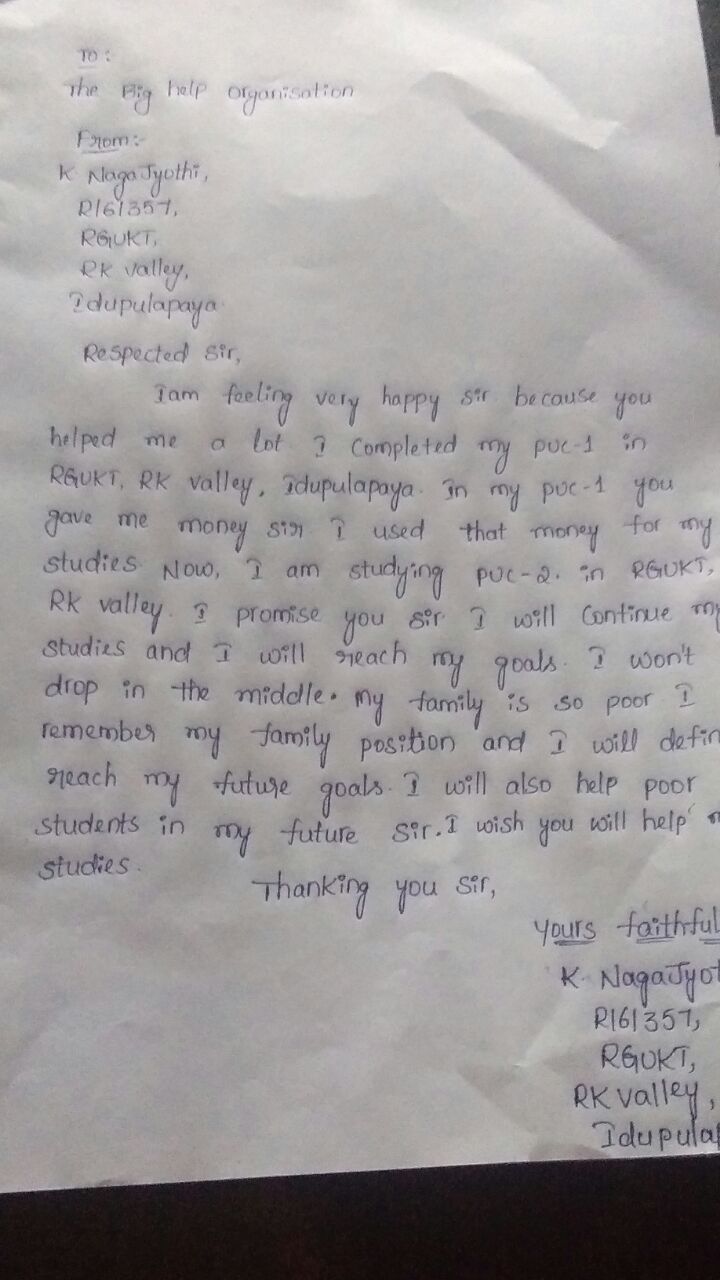 To :
The Big help organisation
From:-
K. NagaJyothi,
R161357,
RGUKT,
RK valley,
Idupulapaya.
Respected Sir,
Iam feeling very happy sir because you
helped me a lot. I completed my PUC-1 in
RGUKT, RK valley, Idupulapaya. In my PUC-1 you
gave me money sir. I used that money for my
studies. Now, I am studying PUC-2. in RGUKT,
RK valley. I promise you sir. I will continue my
studies and I will reach my goals. I won't
drop in the middle. My family is so poor I
remember my family position and I will defin
reach my future goals. I will also help poor
students in my future sir. I wish you will help
studies.
Thanking you sir,
yours faithful
K. NagaJyot
R161357,
RGUKT,
RK valley,
Idupula